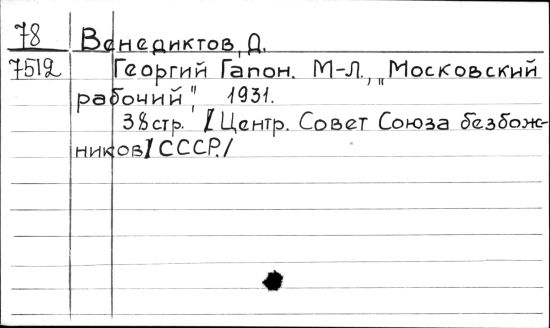 78 Венедиктов, Д.
7512 Георгий Гапон. М-Л., „Московский
рабочий", 1931.
38 стр. [Центр. Совет Союза безбож-
ников] СССР./